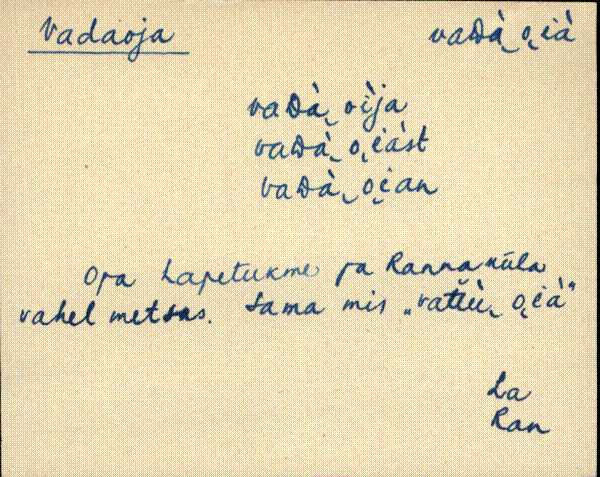 Vadaoja vaᴅà͔ o͔ià
vaᴅà͔ oìja
vaᴅà͔ o͔iàst
vaᴅà͔ o͔ian
Oja Lapetukme ja Rannaküla
vahel metsas. Sama mis „vattù͔ o͔ià"
La
Ran